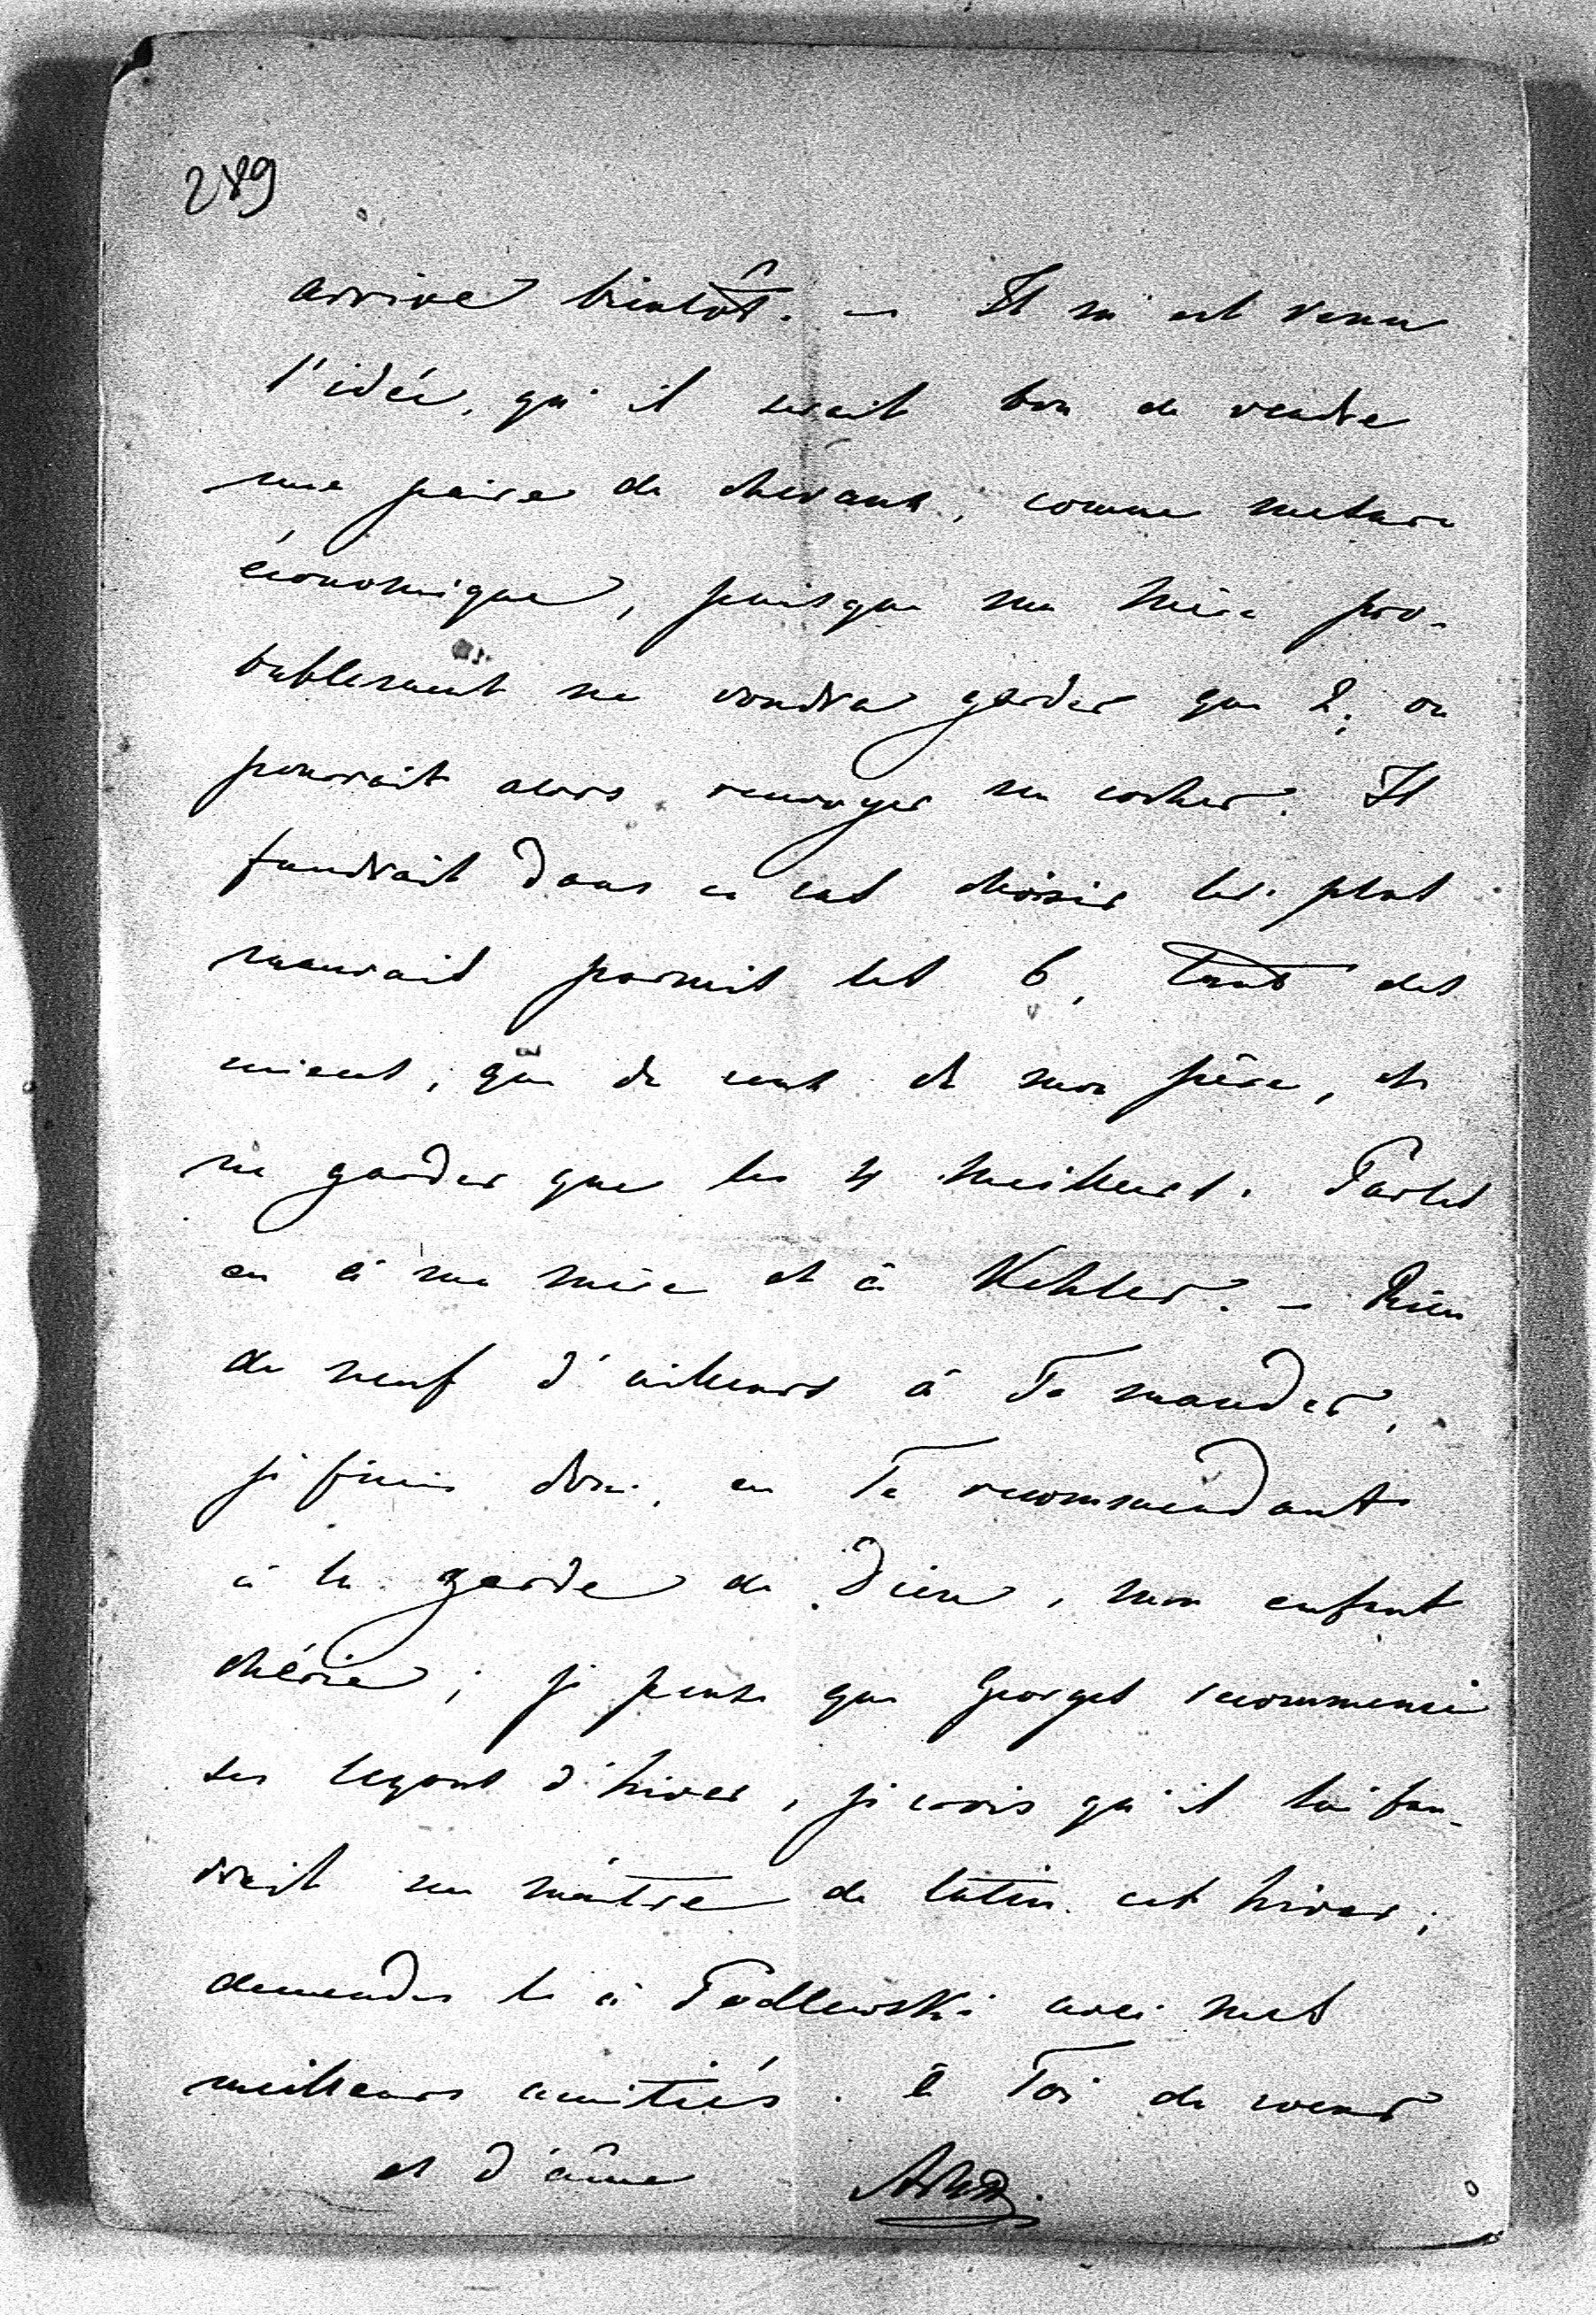 289
arrive bientôt. — Il m'est venu
l'idée, qu'il serait bon de vendre
une paire de chevaux, comme mesure
économique, puisque ma mère pro-
bablement ne voudra garder que 2; on
pourrait alors renvoyer un cocher. Il
faudrait dans ce cas choisir les plus
mauvais parmis les 6, tant des
miens, que de ceux de mon père, et
ne garder que les 4 meilleurs. Parles
en à ma mère et à Kehler. — Rien
de neuf d'ailleurs à Te mander,
je finis donc, en Te recommendant
à la garde de Dieu, mon enfant
chérie; je pense que Georges recommence
ses leçons d'hiver, je crois qu'il lui fau-
drait un maître de latin cet hiver;
demandes le à Podlewski avec mes
meilleurs amitiés. à Toi de coeur
et d'âme